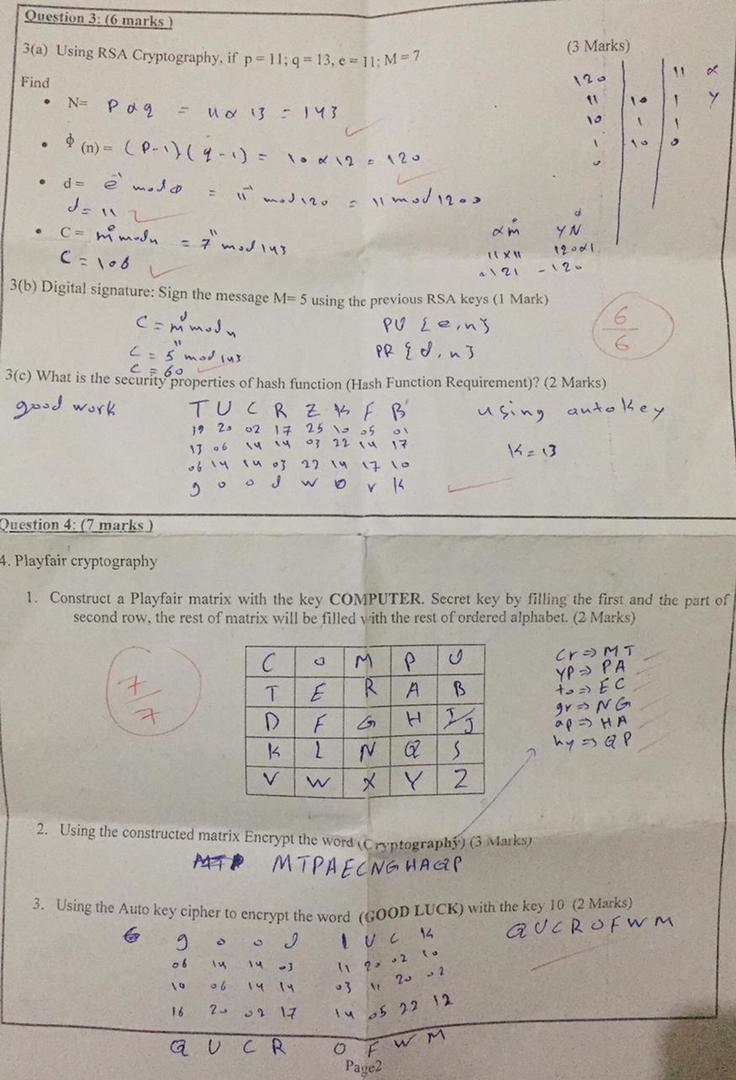 Question 3: (6 marks )
3(a) Using RSA Cryptography, if p = 11; q = 13, e = 11; M = 7 (3 Marks)
Find
• N= p x q = 11 x 13 = 143
• ϕ (n) = (p-1)(q-1) = 10 x 12 = 120
• d = e⁻¹ mod ϕ = 11⁻¹ mod 120 = 11 mod 120
d = 11
• C = mᵉ mod n = 7¹¹ mod 143
C = 106
120 11 x
11 10 1 y
10 1 1
1 10 0
0
11 x 11 120 x 1
= 121 - 120
3(b) Digital signature: Sign the message M= 5 using the previous RSA keys (1 Mark)
C = mᵈ mod n PU {e,n}
C = 5¹¹ mod 143 PR {d,n}
C = 60
6
6
3(c) What is the security properties of hash function (Hash Function Requirement)? (2 Marks)
good work T U C R Z K F B using autokey
19 20 02 17 25 10 05 01
13 06 14 14 03 22 14 17 K = 13
06 14 14 03 22 14 17 10
g o o d w o r k
Question 4: (7 marks )
4. Playfair cryptography
1. Construct a Playfair matrix with the key COMPUTER. Secret key by filling the first and the part of
second row, the rest of matrix will be filled with the rest of ordered alphabet. (2 Marks)
7
7
C O M P U
T E R A B
D F G H I/J
K L N Q S
V W X Y Z
Cr => MT
YP => PA
to => EC
gr => NG
ap => HA
hy => QP
2. Using the constructed matrix Encrypt the word (Cryptography) (3 Marks)
MTPAECNGHAQP
3. Using the Auto key cipher to encrypt the word (GOOD LUCK) with the key 10 (2 Marks)
QUCROFWM
g o o d l U C K
06 14 14 03 11 20 02 10
10 06 14 14 03 11 20 02
16 20 02 17 14 05 22 12
Q U C R O F W M
Page2